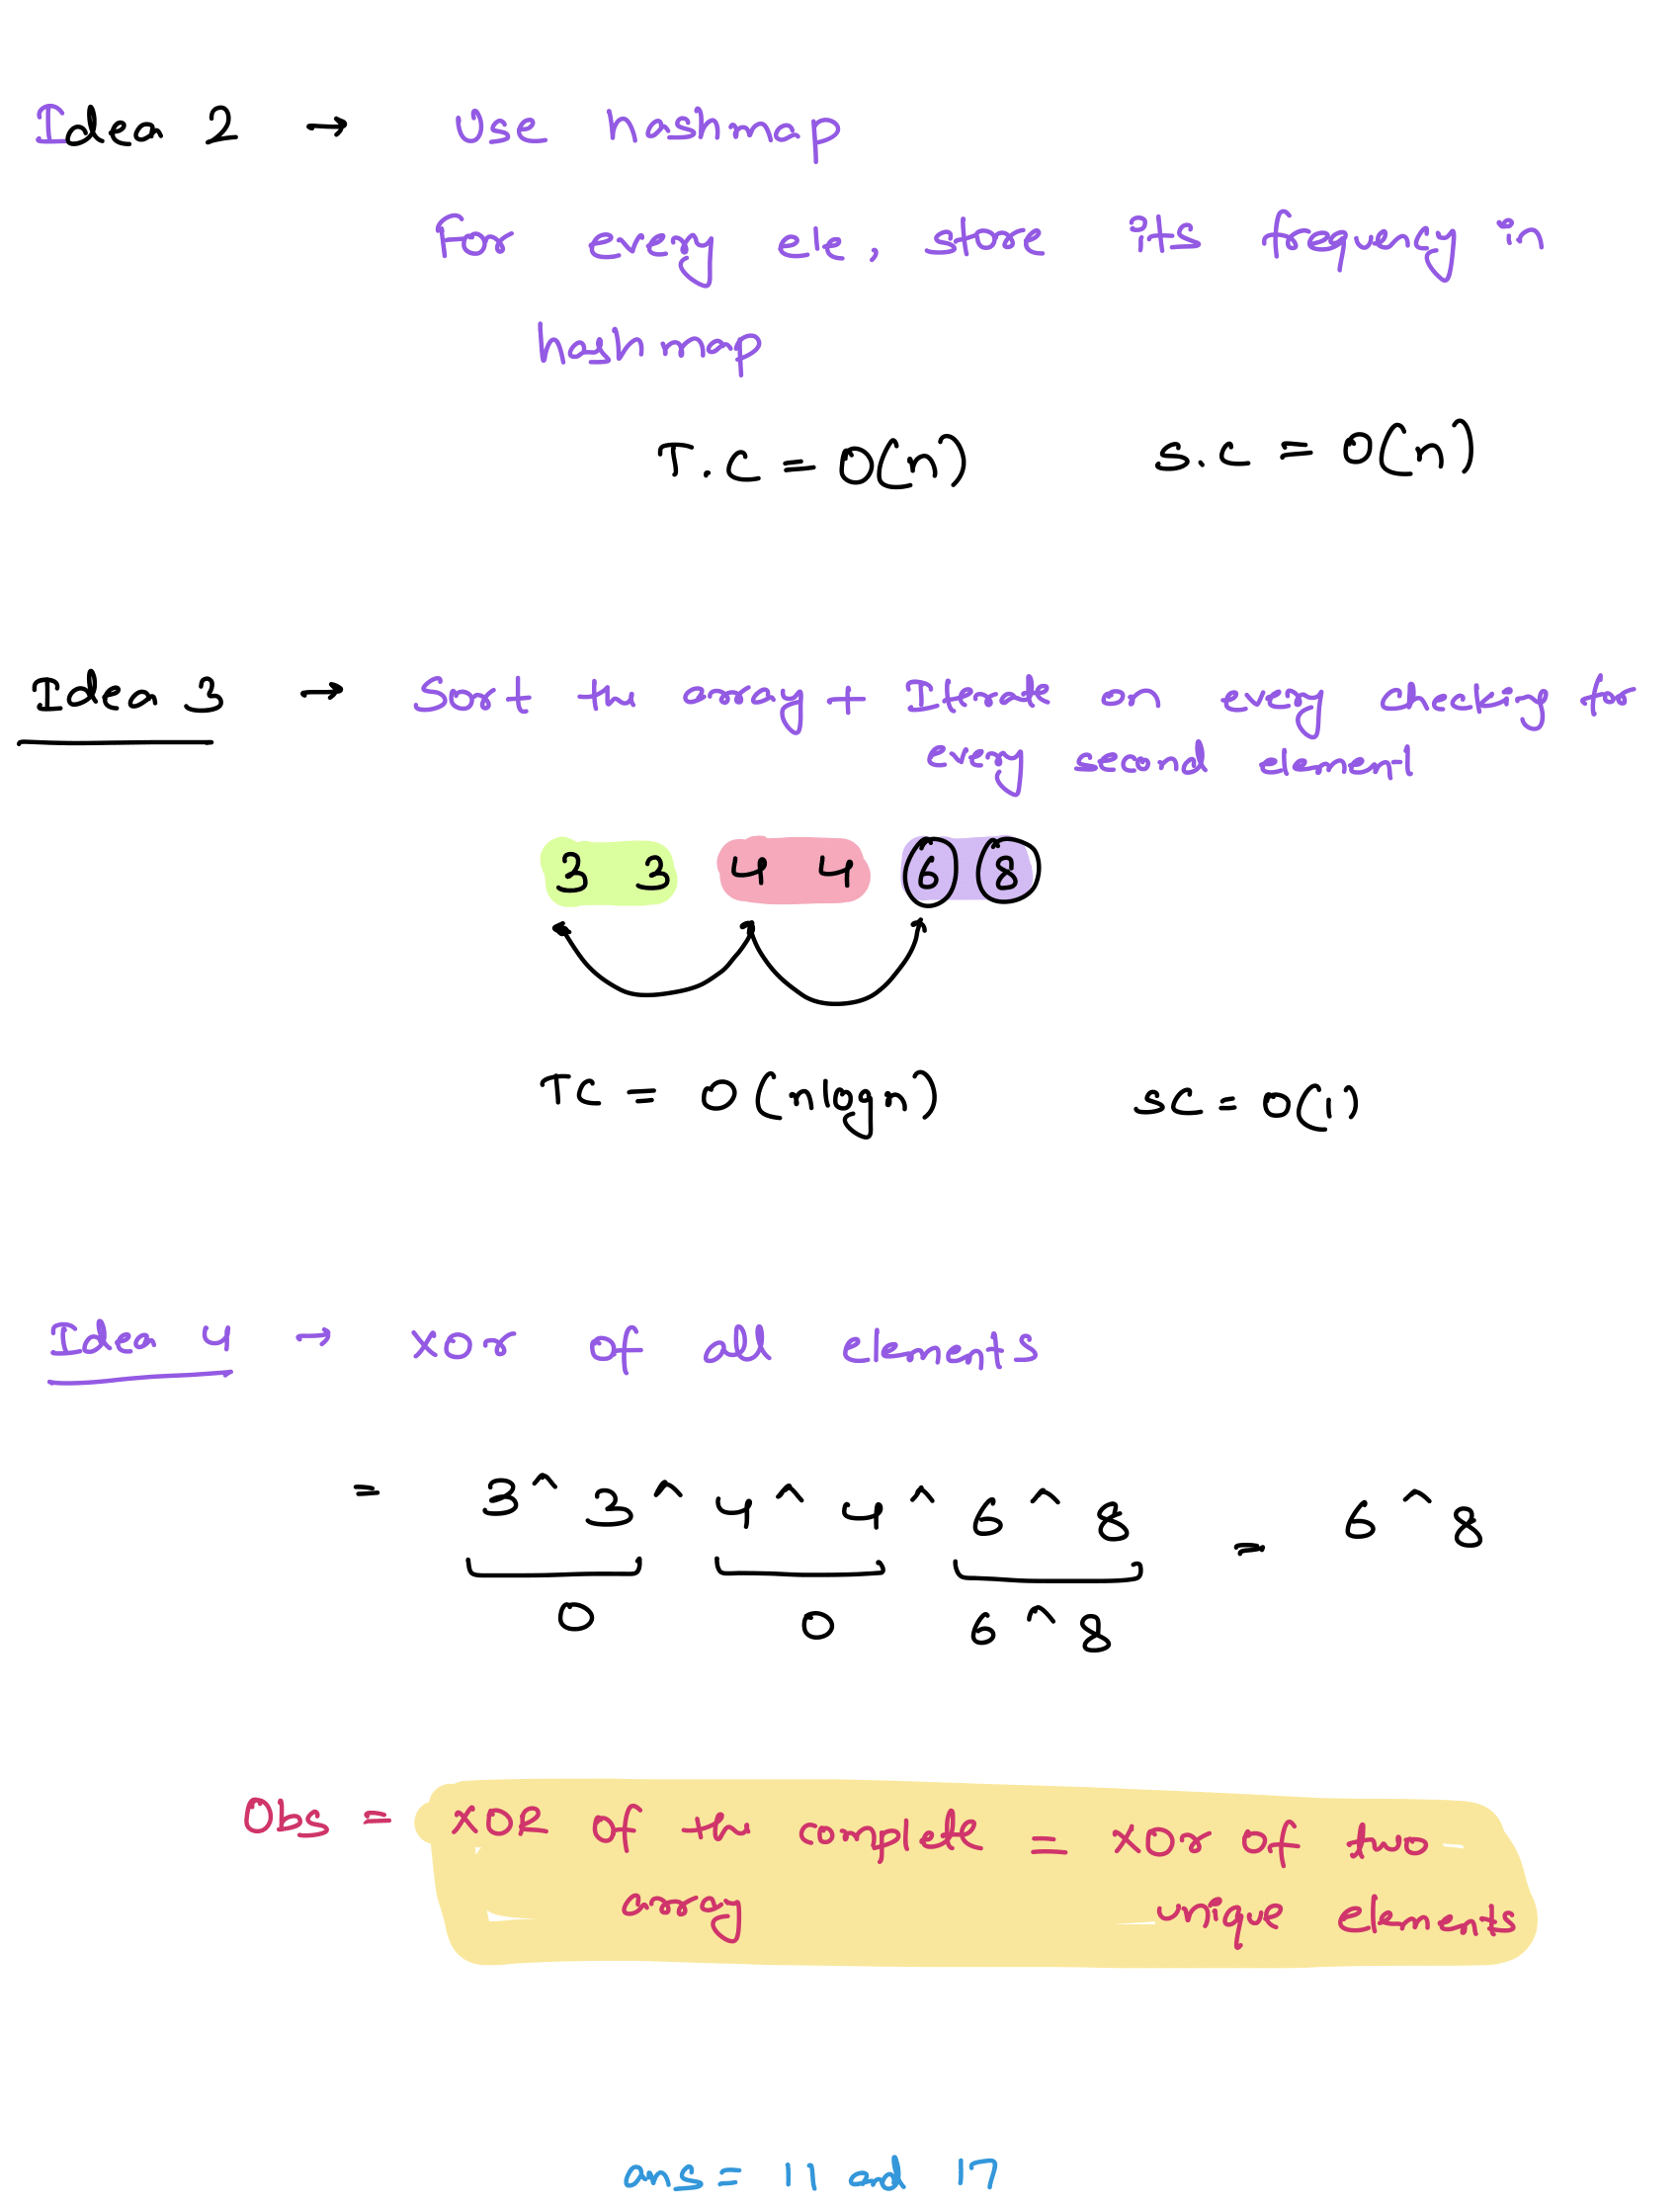 Idea 2 → Use hashmap
For every ele, store its frequency in
hashmap
T.C = O(n) S.C = O(n)
Idea 3 → Sort the array + Iterate on every checking for
every second element
3 3 4 4 6 8
TC = O(nlogn) SC = O(1)
Idea 4 → XOr of all elements
= 3 ^ 3 ^ 4 ^ 4 ^ 6 ^ 8 = 6 ^ 8
0 0 6 ^ 8
Obs = XOR of the complete = XOr of two
array unique elements
ans = 11 ad 17